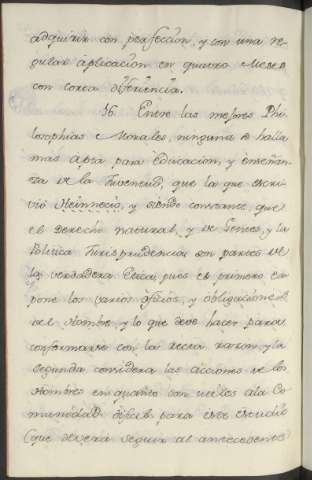 adquirir con perfeccion, y con una re-
gular aplicacion en quatro Meses
con corta diferiencia.
16. Entre las mejores Phi-
losophias Morales, ninguna se halla
mas apta para educacion, y enseñan-
za de la Juventud, que la que escri-
vió Heinnecio, y siendo constante que
el Derecho natural, y de Gentes, y la
Politica Jurisprudencia son partes de
la verdadera Etica; pues el primero ex-
pone los varios oficios, y obligaciones
del Hombre, y lo que deve hacer para
conformarse con la recta razon, y la
segunda considera las acciones de los
Hombres en quanto son utiles a la Co-
munidad; para este estudio
(que deverá seguir al antecedente)